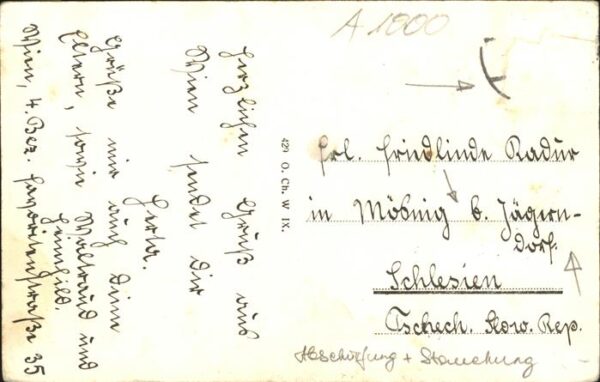 A 1000
Herzlichen Gruß aus
Wien sendet Dir
Herta.
Grüße mir auch Deine
Eltern, sowie Waltraud und
Heimhild.
Wien, 4. Bez. Favoritenstraße 35
421 O. Ch. W IX.
Frl. Friedlinde Radur
in Mösnig b. Jägern-
dorf.
Schlesien
Tschech. Slow. Rep.
Abschürfung +